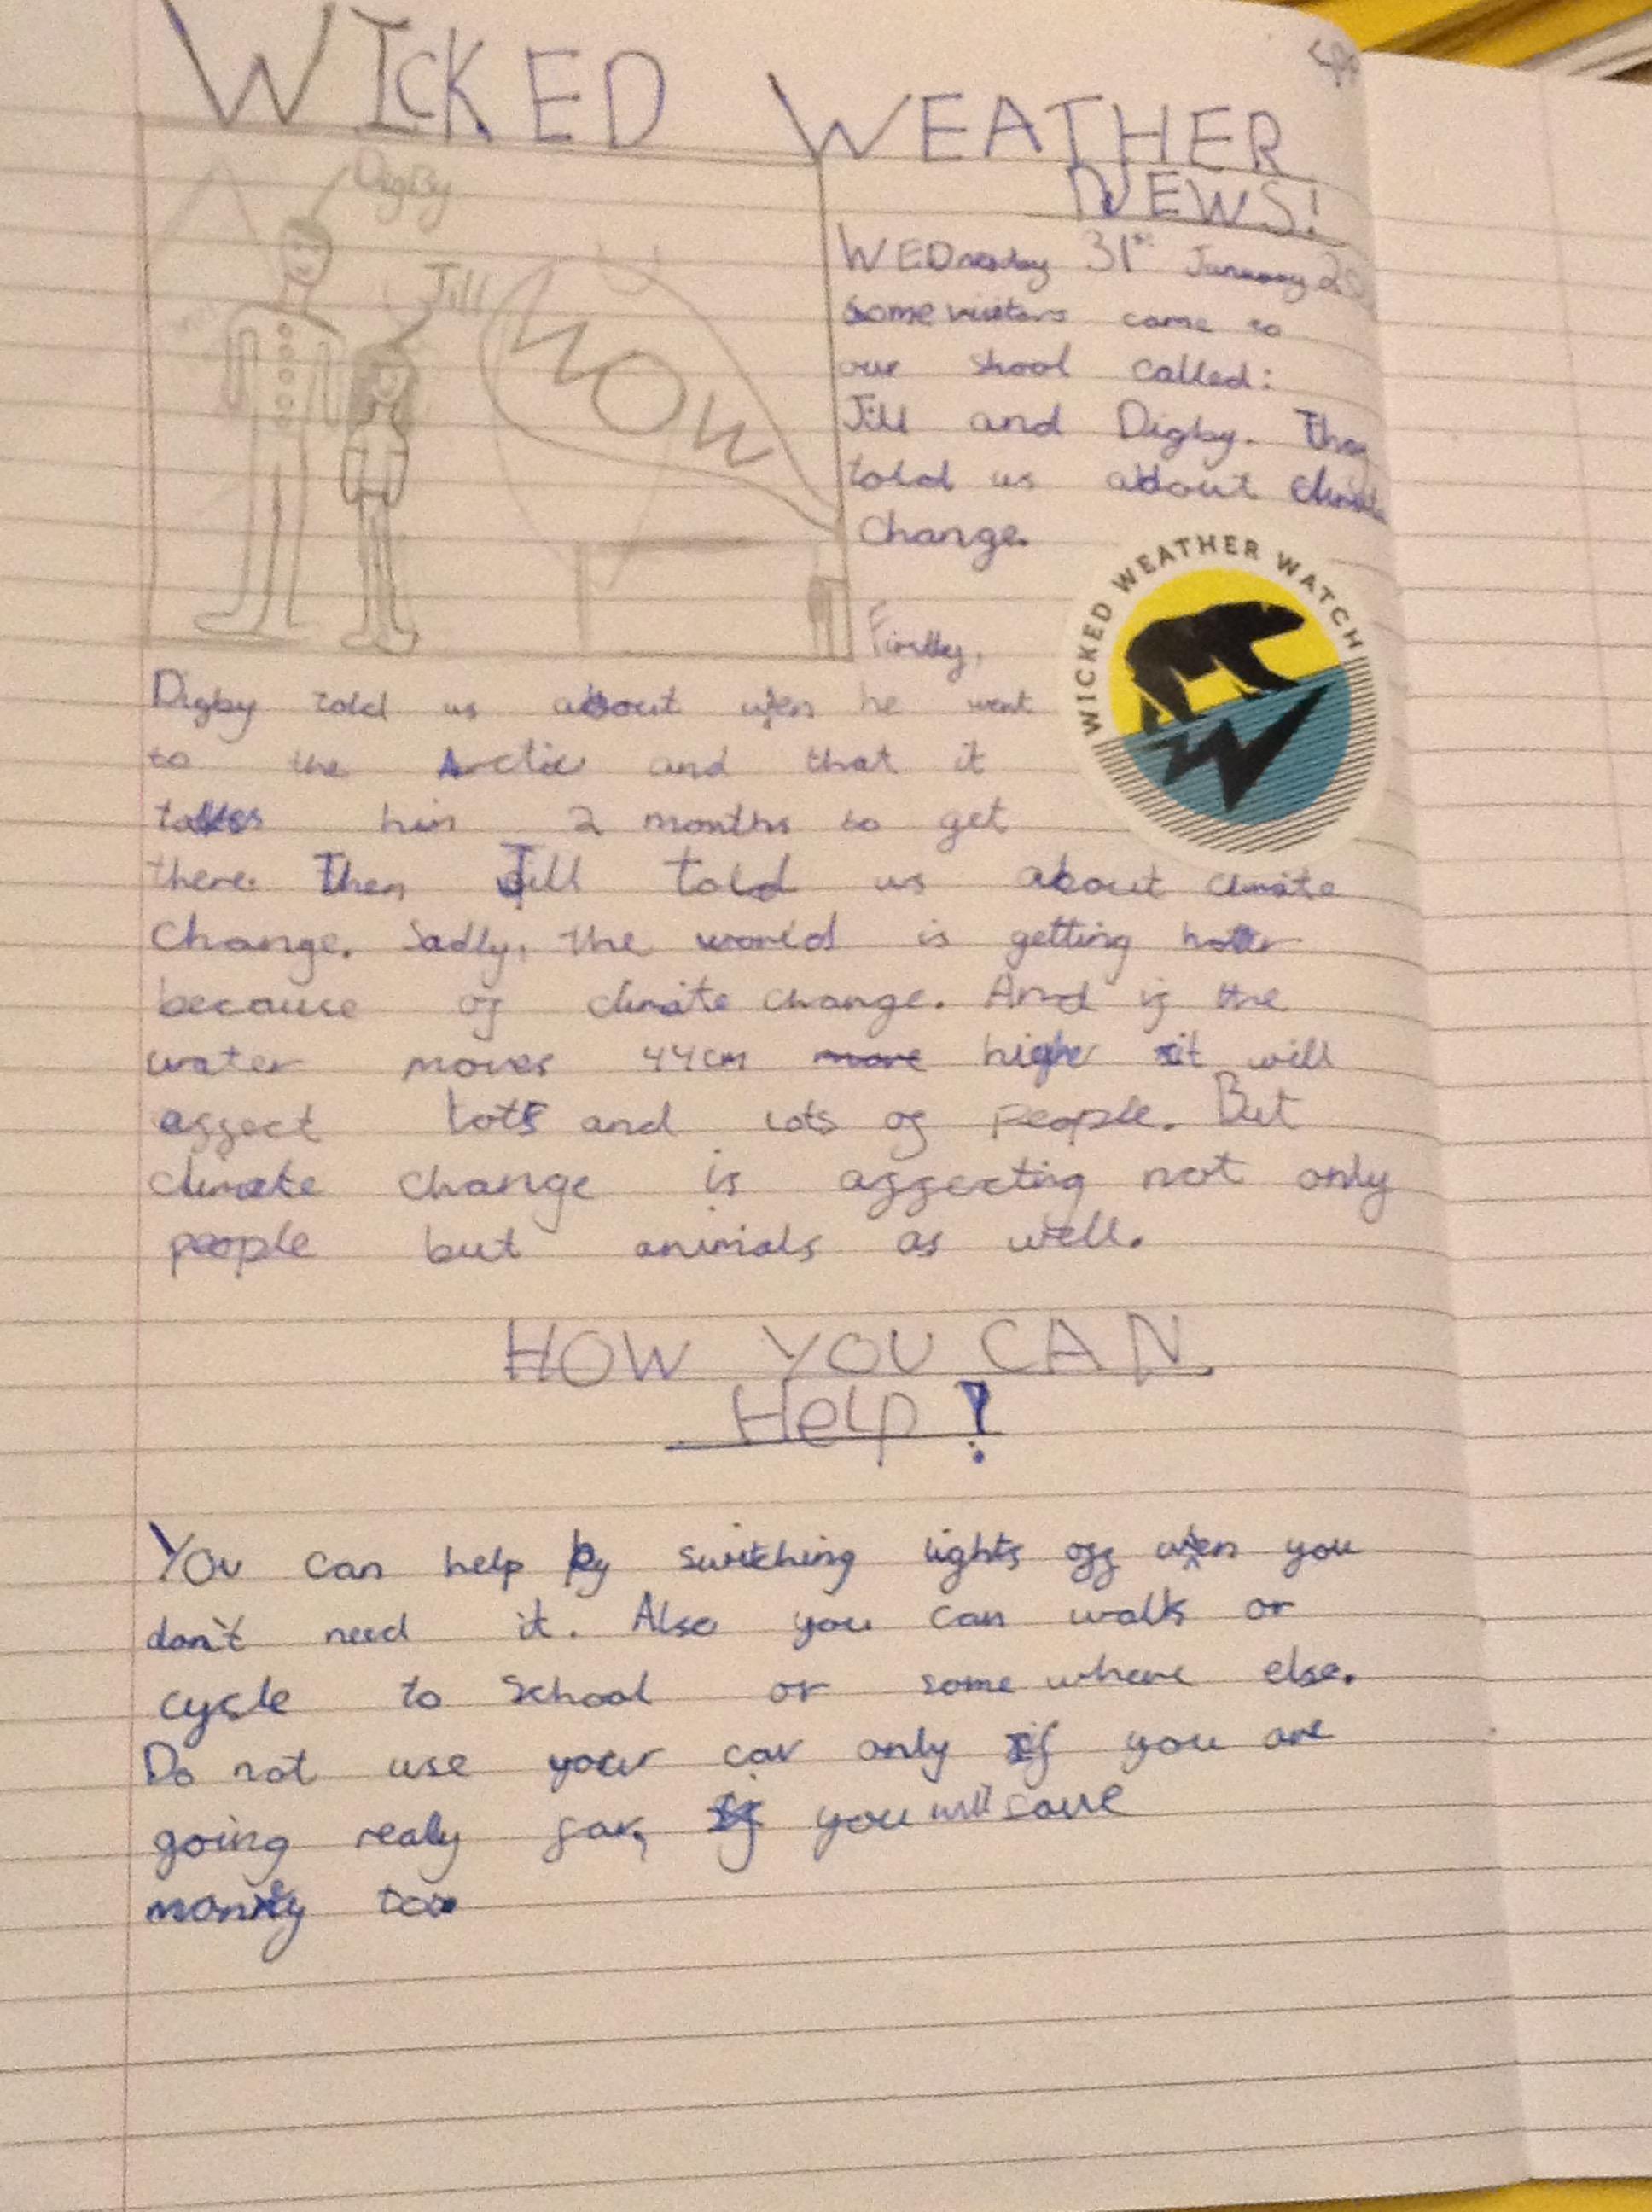 WICKED WEATHER
NEWS!
DigBy
Jill
WOW
WEDnesday 31st January 20
Some visitors came to
our shool called:
Jill and Digby. They
told us about climate
change.
WICKED WEATHER WATCH
Firstly,
Digby told us about when he went
to the Arctic and that it
takes him 2 months to get
there. Then Jill told us about climate
change. Sadly, the world is getting hotter
because of climate change. And if the
water moves 44cm more higher it will
affect lots and lots of people. But
climate change is affecting not only
people but animals as well.
HOW YOU CAN
Help!
You can help by switching lights off when you
don't need it. Also you can walk or
cycle to school or some where else.
Do not use your car only if you are
going really far, you will save
money too